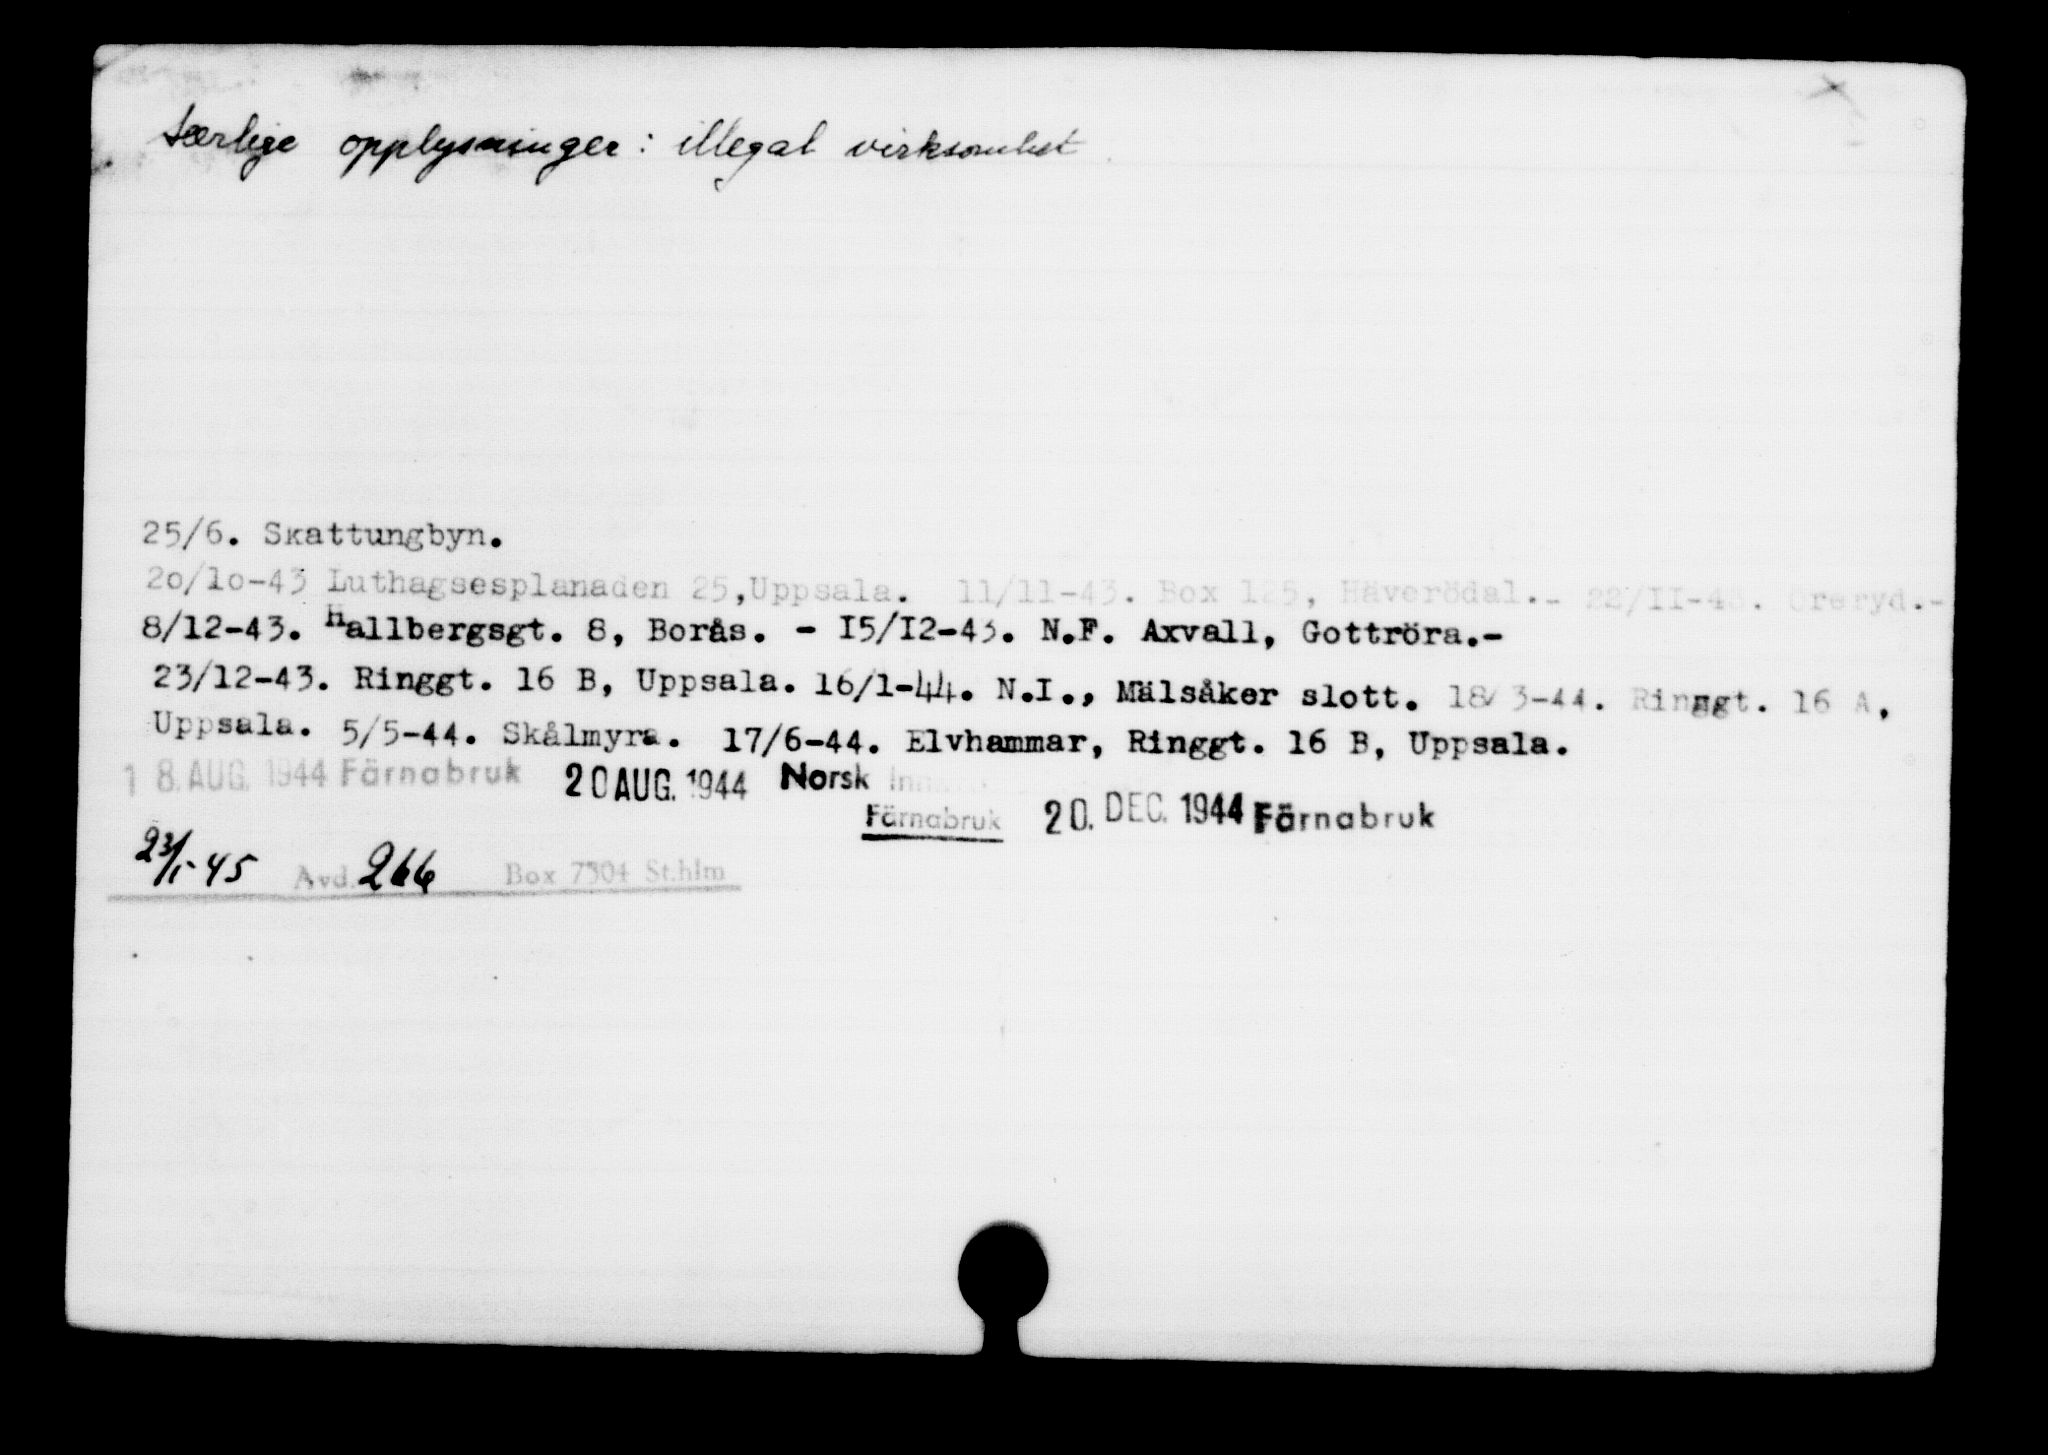 Særlige opplysninger: illegal virksomhet
25/6. Skattungbyn.
2o/1o-43 Luthagsesplanaden 25,Uppsala. 11/11-43. Box 125, Häverödal.- 22/II-43. Öreryd.-
8/12-43. Hallbergsgt. 8, Borås. - I5/I2-43. N.F. Axvall, Gottröra.-
23/12-43. Ringgt. 16 B, Uppsala. 16/1-44. N.I., Mälsåker slott. 18/3-44. Ringgt. 16 A,
Uppsala. 5/5-44. Skålmyra. 17/6-44. Elvhammar, Ringgt. 16 B, Uppsala.
18. AUG. 1944 Färnabruk 20 AUG. 1944 Norsk
Färnabruk 20. DEC. 1944 Färnabruk
23/1-45 Avd. 266 Box 7304 St.hlm